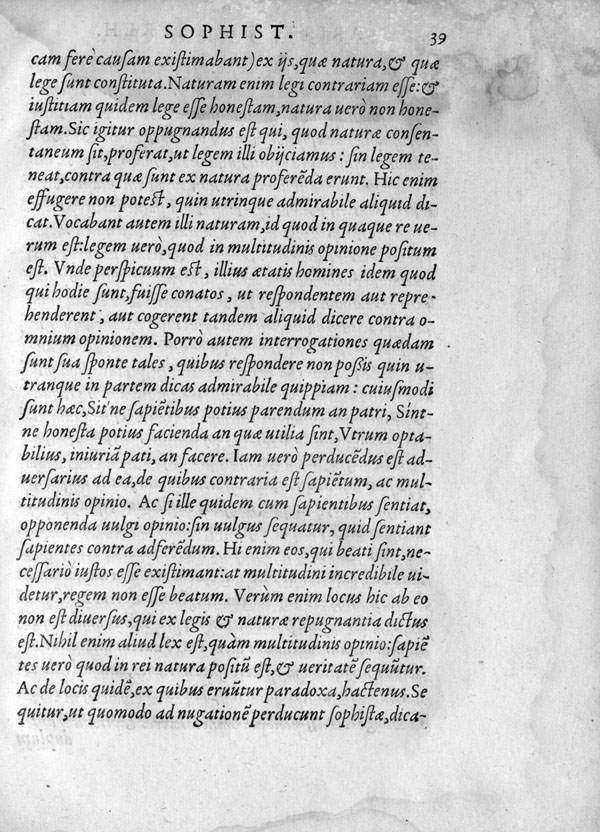 SOPHIST. 39
cam ferè causam existimabant) ex ijs, quæ natura, & quæ
lege sunt constituta. Naturam enim legi contrariam esse: &
iustitiam quidem lege esse honestam, natura uerò non hone-
stam. Sic igitur oppugnandus est qui, quod naturæ consen-
taneum sit, proferat, ut legem illi obijciamus: sin legem te-
neat, contra quæ sunt ex natura proferẽda erunt. Hic enim
effugere non potest, quin utrinque admirabile aliquid di-
cat. Vocabant autem illi naturam, id quod in quaque re ue-
rum est: legem uerò, quod in multitudinis opinione positum
est. Vnde perspicuum est, illius ætatis homines idem quod
qui hodie sunt, fuisse conatos, ut respondentem aut repre-
henderent, aut cogerent tandem aliquid dicere contra o-
mnium opinionem. Porrò autem interrogationes quædam
sunt sua sponte tales, quibus respondere non possis quin u-
tranque in partem dicas admirabile quippiam: cuiusmodi
sunt hæc, Sit'ne sapiẽtibus potius parendum an patri, Sint-
ne honesta potius facienda an quæ utilia sint, Vtrum opta-
bilius, iniuriã pati, an facere. Iam uerò perducẽdus est ad-
uersarius ad ea, de quibus contraria est sapiẽtum, ac mul-
titudinis opinio. Ac si ille quidem cum sapientibus sentiat,
opponenda uulgi opinio: sin uulgus sequatur, quid sentiant
sapientes contra adferẽdum. Hi enim eos, qui beati sint, ne-
cessariò iustos esse existimant: at multitudini incredibile ui-
detur, regem non esse beatum. Verùm enim locus hic ab eo
non est diuersus, qui ex legis & naturæ repugnantia dictus
est. Nihil enim aliud lex est, quàm multitudinis opinio: sapiẽ
tes uerò quod in rei natura positũ est, & ueritatẽ sequũtur.
Ac de locis quidẽ, ex quibus eruũtur paradoxa, hactenus. Se
quitur, ut quomodo ad nugationẽ perducunt sophistæ, dica-